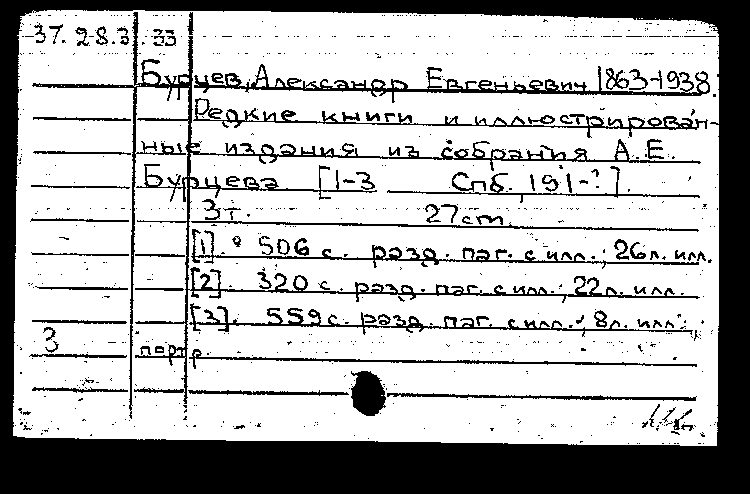 37.28.3.33
Бурцев, Александр Евгеньевич 1863-1938.
Редкие книги и иллюстрирован-
ные издания из собрания А.Е.
Бурцева [1-3 Спб., 191-?].
3т. 27cm.
[1]. 506 с. разд. паг. с илл.; 26л. илл.
[2]. 320 с. разд. паг. с илл.; 22л. илл.
[3]. 559 с. разд. паг. с илл.; 8л. илл.
3 портр.